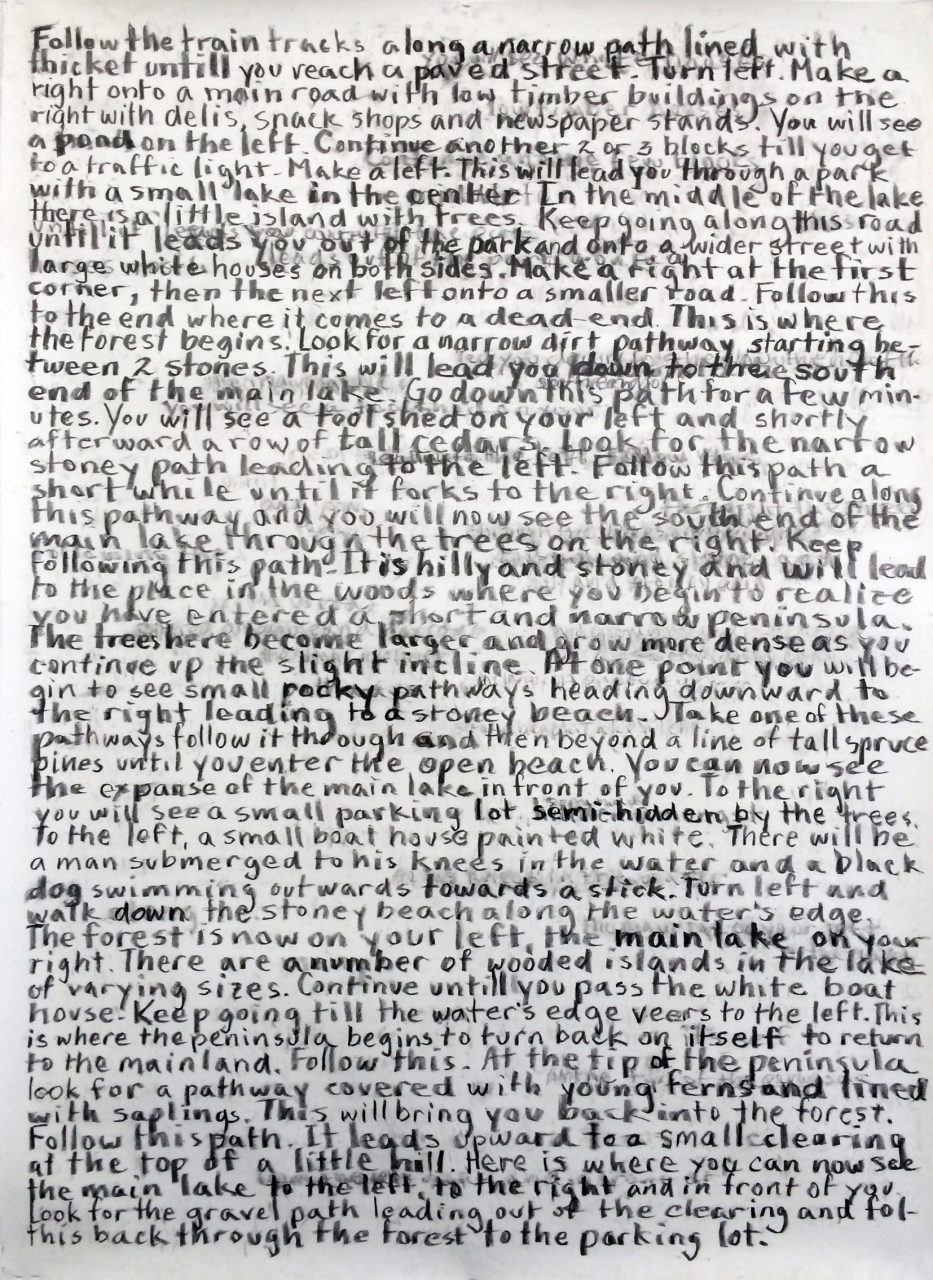 Follow the train tracks along a narrow path lined with
thicket untill you reach a paved street. Turn left. Make a
right onto a main road with low timber buildings on the
right with delis, snack shops and newspaper stands. You will see
a pond on the left. Continue another 2 or 3 blocks till you get
to a traffic light. Make a left. This will lead you through a park
with a small lake in the center. In the middle of the lake
there is a little island with trees. Keep going along this road
until it leads you out of the park and onto a wider street with
large white houses on both sides. Make a right at the first
corner, then the next left onto a smaller road. Follow this
to the end where it comes to a dead-end. This is where
the forest begins. Look for a narrow dirt pathway starting be-
tween 2 stones. This will lead you down to the south
end of the main lake. Go down this path for a few min-
utes. You will see a tool shed on your left and shortly
afterward a row of tall cedars. Look for the narrow
stoney path leading to the left. Follow this path a
short while until it forks to the right. Continue along
this pathway and you will now see the south end of the
main lake through the trees on the right. Keep
following this path. It is hilly and stoney and will lead
to the place in the woods where you begin to realize
you have entered a short and narrow peninsula.
The trees here become larger and grow more dense as you
continue up the slight incline. At one point you will be-
gin to see small rocky pathways heading downward to
the right leading to a stoney beach. Take one of these
pathways follow it through and then beyond a line of tall spruce
pines until you enter the open beach. You can now see
the expanse of the main lake in front of you. To the right
you will see a small parking lot semi-hidden by the trees.
To the left, a small boat house painted white. There will be
a man submerged to his knees in the water and a black
dog swimming outwards towards a stick. Turn left and
walk down the stoney beach along the water's edge.
The forest is now on your left, the main lake on your
right. There are a number of wooded islands in the lake
of varying sizes. Continue untill you pass the white boat
house. Keep going till the water's edge veers to the left. This
is where the peninsula begins to turn back on itself to return
to the mainland. Follow this. At the tip of the peninsula
look for a pathway covered with young ferns and lined
with saplings. This will bring you back into the forest.
Follow this path. It leads upward to a small clearing
at the top of a little hill. Here is where you can now see
the main lake to the left, to the right and in front of you.
Look for the gravel path leading out of the clearing and fol-
this back through the forest to the parking lot.